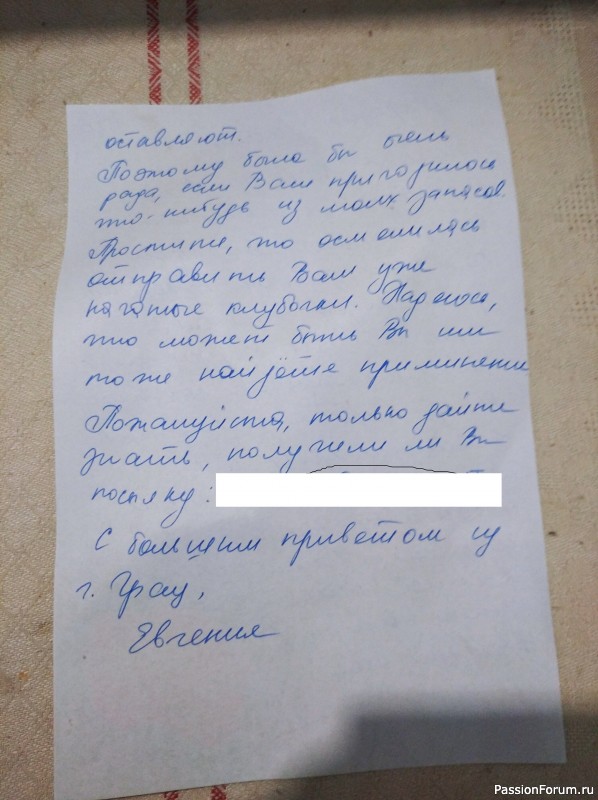 оставляют.
Поэтому была бы очень
рада, если Вам пригодилось
что-нибудь из моих запасов.
Простите, что осмелилась
отправить Вам уже
начатые клубочки. Надеюсь,
что может быть Вы им
тоже найдёте применение
Пожалуйста, только дайте
знать, получили ли Вы
посылку:
С большим приветом из
г. Грац,
Евгения
PassionForum.ru